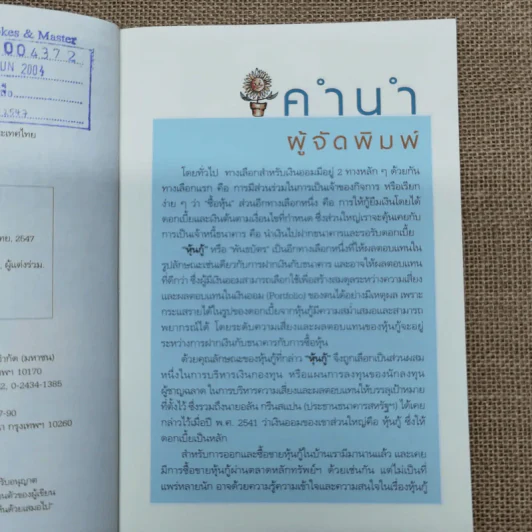 okes & Master
004372
UN 2004
ระเทศไทย
คย. 2547
ผู้แต่งร่วม.
จำกัด (มหาชน)
ทพฯ 10170
2, 0-2434-1385
97-90
า กรุงเทพฯ 10260
รับอนุญาต
คำนำ
ผู้จัดพิมพ์
โดยทั่วไป ทางเลือกสำหรับเงินออมมีอยู่ 2 ทางหลัก ๆ ด้วยกัน
ทางเลือกแรก คือ การมีส่วนร่วมในการเป็นเจ้าของกิจการ หรือเรียก
ง่าย ๆ ว่า "ซื้อหุ้น" ส่วนอีกทางเลือกหนึ่ง คือ การให้กู้ยืมเงินโดยได้
ดอกเบี้ยและเงินต้นตามเงื่อนไขที่กำหนด ซึ่งส่วนใหญ่เราจะคุ้นเคยกับ
การเป็นเจ้าหนี้ธนาคาร คือ นำเงินไปฝากธนาคารและรอรับดอกเบี้ย
"หุ้นกู้" หรือ "พันธบัตร" เป็นอีกทางเลือกหนึ่งที่ให้ผลตอบแทนใน
รูปลักษณะเช่นเดียวกับการฝากเงินกับธนาคาร และอาจให้ผลตอบแทน
ที่ดีกว่า ซึ่งผู้มีเงินออมสามารถเลือกใช้เพื่อสร้างสมดุลระหว่างความเสี่ยง
และผลตอบแทนในเงินออม (Portfolio) ของตนได้อย่างมีเหตุผล เพราะ
กระแสรายได้ในรูปของดอกเบี้ยจากหุ้นกู้มีความสม่ำเสมอและสามารถ
พยากรณ์ได้ โดยระดับความเสี่ยงและผลตอบแทนของหุ้นกู้จะอยู่
ระหว่างการฝากเงินกับธนาคารกับการซื้อหุ้น
ด้วยคุณลักษณะของหุ้นกู้ที่กล่าว "หุ้นกู้" จึงถูกเลือกเป็นส่วนผสม
หนึ่งในการบริหารเงินกองทุน หรือแผนการลงทุนของนักลงทุน
ผู้ชาญฉลาด ในการบริหารความเสี่ยงและผลตอบแทนให้บรรลุเป้าหมาย
ที่ตั้งไว้ ซึ่งรวมถึงนายอลัน กรีนสแปน (ประธานธนาคารสหรัฐฯ) ได้เคย
กล่าวไว้เมื่อปี พ.ศ. 2541 ว่าเงินออมของเขาส่วนใหญ่คือ หุ้นกู้ ซึ่งให้
ดอกเบี้ยเป็นหลัก
สำหรับการออกและซื้อขายหุ้นกู้ในบ้านเรามีมานานแล้ว และเคย
มีการซื้อขายหุ้นกู้ผ่านตลาดหลักทรัพย์ฯ ด้วยเช่นกัน แต่ไม่เป็นที่
แพร่หลายนัก อาจด้วยความรู้ความเข้าใจและความสนใจในเรื่องหุ้นกู้